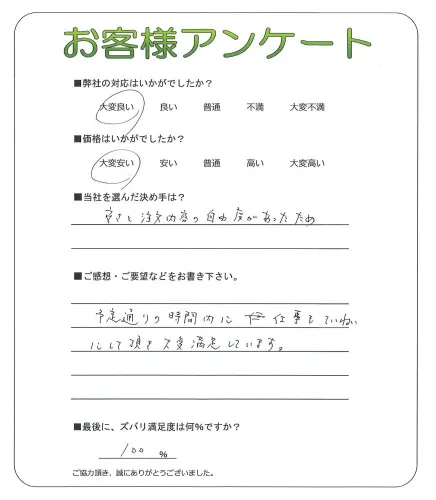 お客様アンケート
■弊社の対応はいかがでしたか？
大変良い 良い 普通 不満 大変不満
■価格はいかがでしたか？
大変安い 安い 普通 高い 大変高い
■当社を選んだ決め手は？
安さと注文内容の自由度があったため
■ご感想・ご要望などをお書き下さい。
予定通りの時間内に 仕事をていねい
にして頂き大変満足しています。
■最後に、ズバリ満足度は何％ですか？
100 ％
ご協力頂き、誠にありがとうございました。